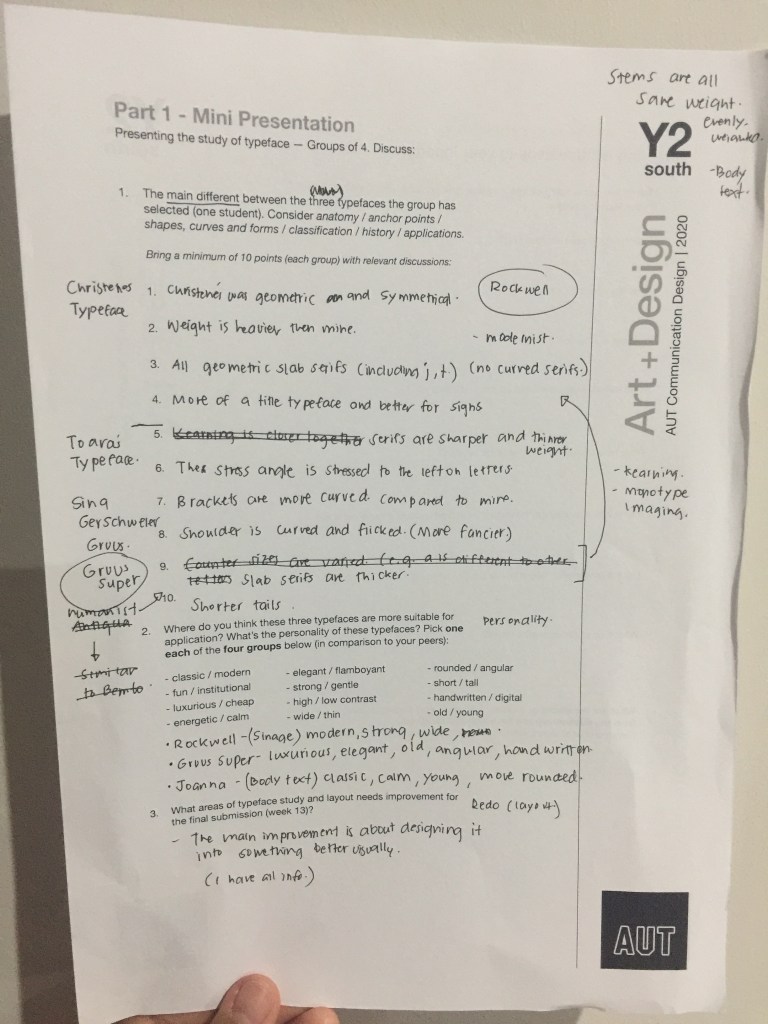 Stems are all
same weight.
evenly.
Part 1 - Mini Presentation
Presenting the study of typeface — Groups of 4. Discuss:
Y2
south
-Body
text.
1. The main different between the three typefaces the group has
selected (one student). Consider anatomy / anchor points /
shapes, curves and forms / classification / history / applications.
Bring a minimum of 10 points (each group) with relevant discussions:
Art + Design
AUT Communication Design | 2020
Christenes
Typeface
1. Christenes was geometric and symmetrical.
Rockwell
2. Weight is heavier then mine.
- modernist.
3. All geometric slab serifs (including j, t.) (no curved serifs.)
4. More of a title typeface and better for signs
Toarai
Typeface.
5. Kearning is closer together serifs are sharper and thinner
weight.
6. Thes stress angle is stressed to the left on letters.
- kearning.
- monotype
imaging.
Sina
Gerschweler
Gruus.
7. Brackets are more curved compared to mine.
8. Shoulder is curved and flicked. (More fancier.)
Gruus
Super
9. Counter sizes are varied (e.g. a is different to other
letters slab serifs are thicker.
humanist
Antiqua
10. Shorter tails.
similar
to Bembo.
2. Where do you think these three typefaces are more suitable for
application? What's the personality of these typefaces? Pick one
each of the four groups below (in comparison to your peers):
Personality.
- classic / modern
- elegant / flamboyant
- rounded / angular
- fun / institutional
- strong / gentle
- short / tall
- luxurious / cheap
- high / low contrast
- handwritten / digital
- energetic / calm
- wide / thin
- old / young
• Rockwell - (Sinage) modern, strong, wide,
• Gruus Super - luxurious, elegant, old, angular, hand written
• Joanna - (Body text) classic, calm, young, more rounded.
3. What areas of typeface study and layout needs improvement for
the final submission (week 13)?
Redo (layout)
- The main improvement is about designing it
into something better usually.
(I have all info.)
AUT